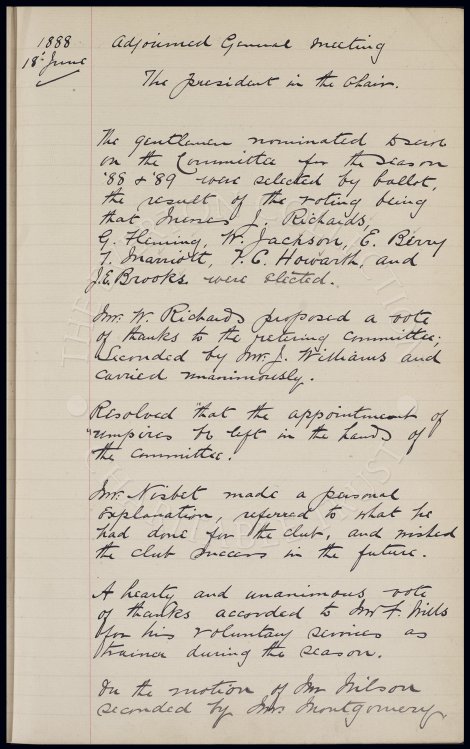 1888
18th June
Adjourned General Meeting
The President in the Chair.
The gentlemen nominated to serve
on the Committee for the season
'88 & '89 were selected by ballot,
the result of the voting being
that Messrs J. Richards,
G. Fleming, W. Jackson, E. Berry
T. Marriott, V. C. Howarth, and
J. E. Brooks were elected.
Mr. W. Richards proposed a vote
of thanks to the retiring committee;
Seconded by Mr. J. Williams and
carried unanimously.
Resolved "that the appointment of
"umpires be left in the hands of
the committee."
Mr. Nisbet made a personal
explanation, referred to what he
had done for the club, and wished
the club success in the future.
A hearty and unanimous vote
of thanks accorded to Mr F. Wills
for his voluntary services as
trainer during the season.
On the motion of Mr Wilson
seconded by Mr Montgomery